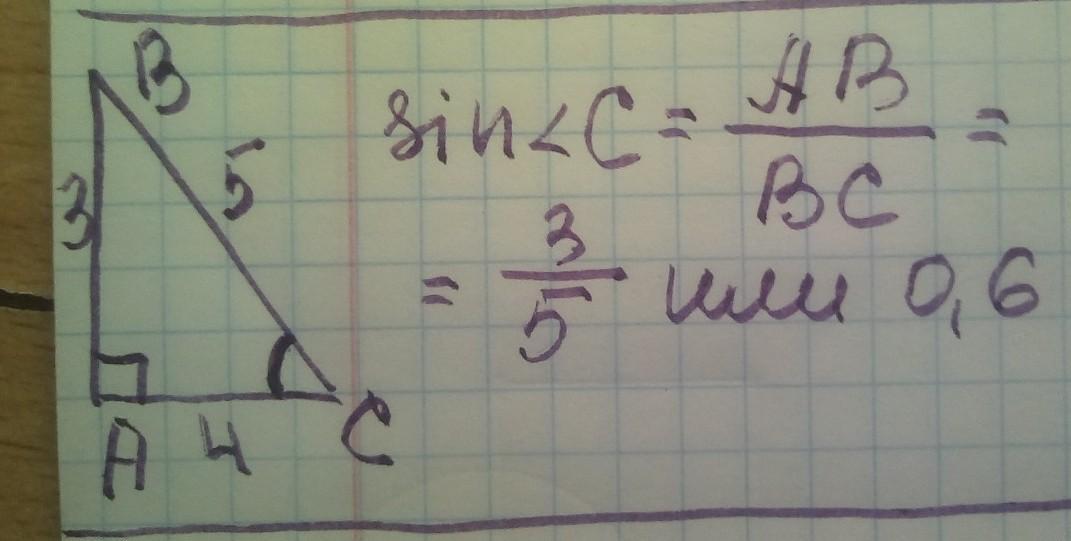 B
3
5
A
4
C
sin<C = AB/BC =
= 3/5 или 0,6